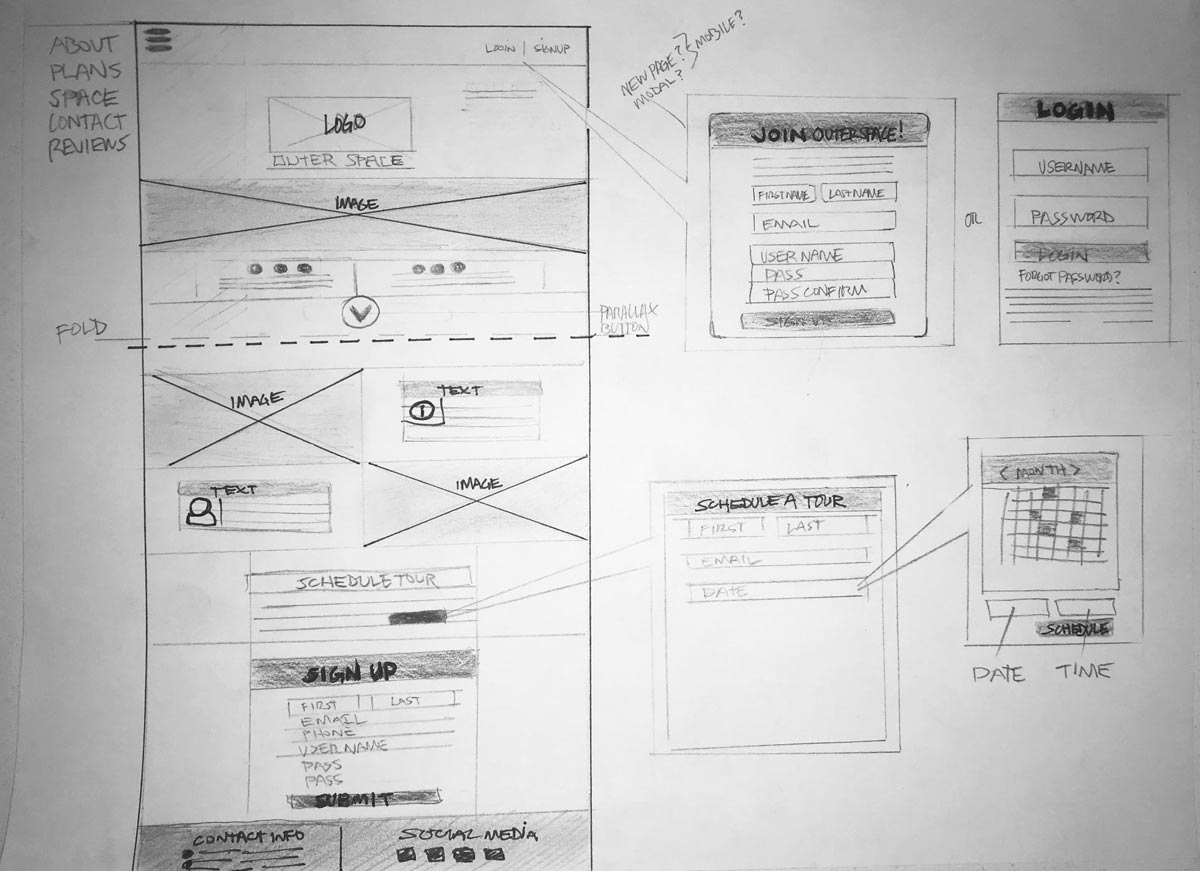 ABOUT
PLANS
SPACE
CONTACT
REVIEWS
LOGIN | SIGNUP
LOGO
OUTER SPACE
IMAGE
FOLD
PARALLAX
BUTTON
IMAGE
TEXT
i
TEXT
IMAGE
SCHEDULE TOUR
SIGN UP
FIRST LAST
EMAIL
PHONE
USERNAME
PASS
PASS
SUBMIT
CONTACT INFO
SOCIAL MEDIA
NEW PAGE?
MODAL?
} MOBILE?
JOIN OUTERSPACE!
FIRST NAME LAST NAME
EMAIL
USERNAME
PASS
PASS CONFIRM
SIGN UP
OR
LOGIN
USERNAME
PASSWORD
LOGIN
FORGOT PASSWORD?
SCHEDULE A TOUR
FIRST LAST
EMAIL
DATE
< MONTH >
SCHEDULE
DATE TIME